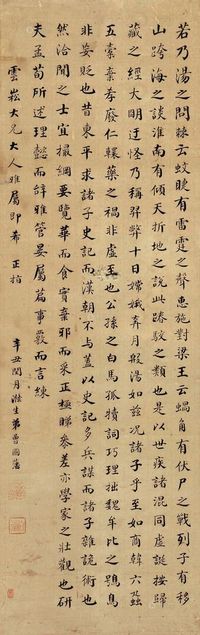 若乃湯之問棘云蚊睫有雷霆之聲惠施對梁王云蝸角有伏尸之戰列子有移
山跨海之談淮南有傾天折地之說此踳駁之類也是以世疾諸混同虛誕按歸
藏之經大明迂怪乃稱羿弊十日嫦娥奔月殷湯如茲況諸子乎至如商韓六蝨
五蠹棄孝廢仁轘藥之禍非虛至也公孫之白馬孤犢詞巧理拙魏牟比之鴞鳥
非妄貶也昔東平求諸子史記而漢朝不與蓋以史記多兵謀而諸子雜詭術也
然洽聞之士宜撮綱要覽華而食實棄邪而采正極睇參差亦學家之壯觀也研
夫孟荀所述理懿而辭雅管晏屬篇事覈而言練
雲崧大兄大人雅屬即希 正指
辛丑閏月滌生弟曾國藩